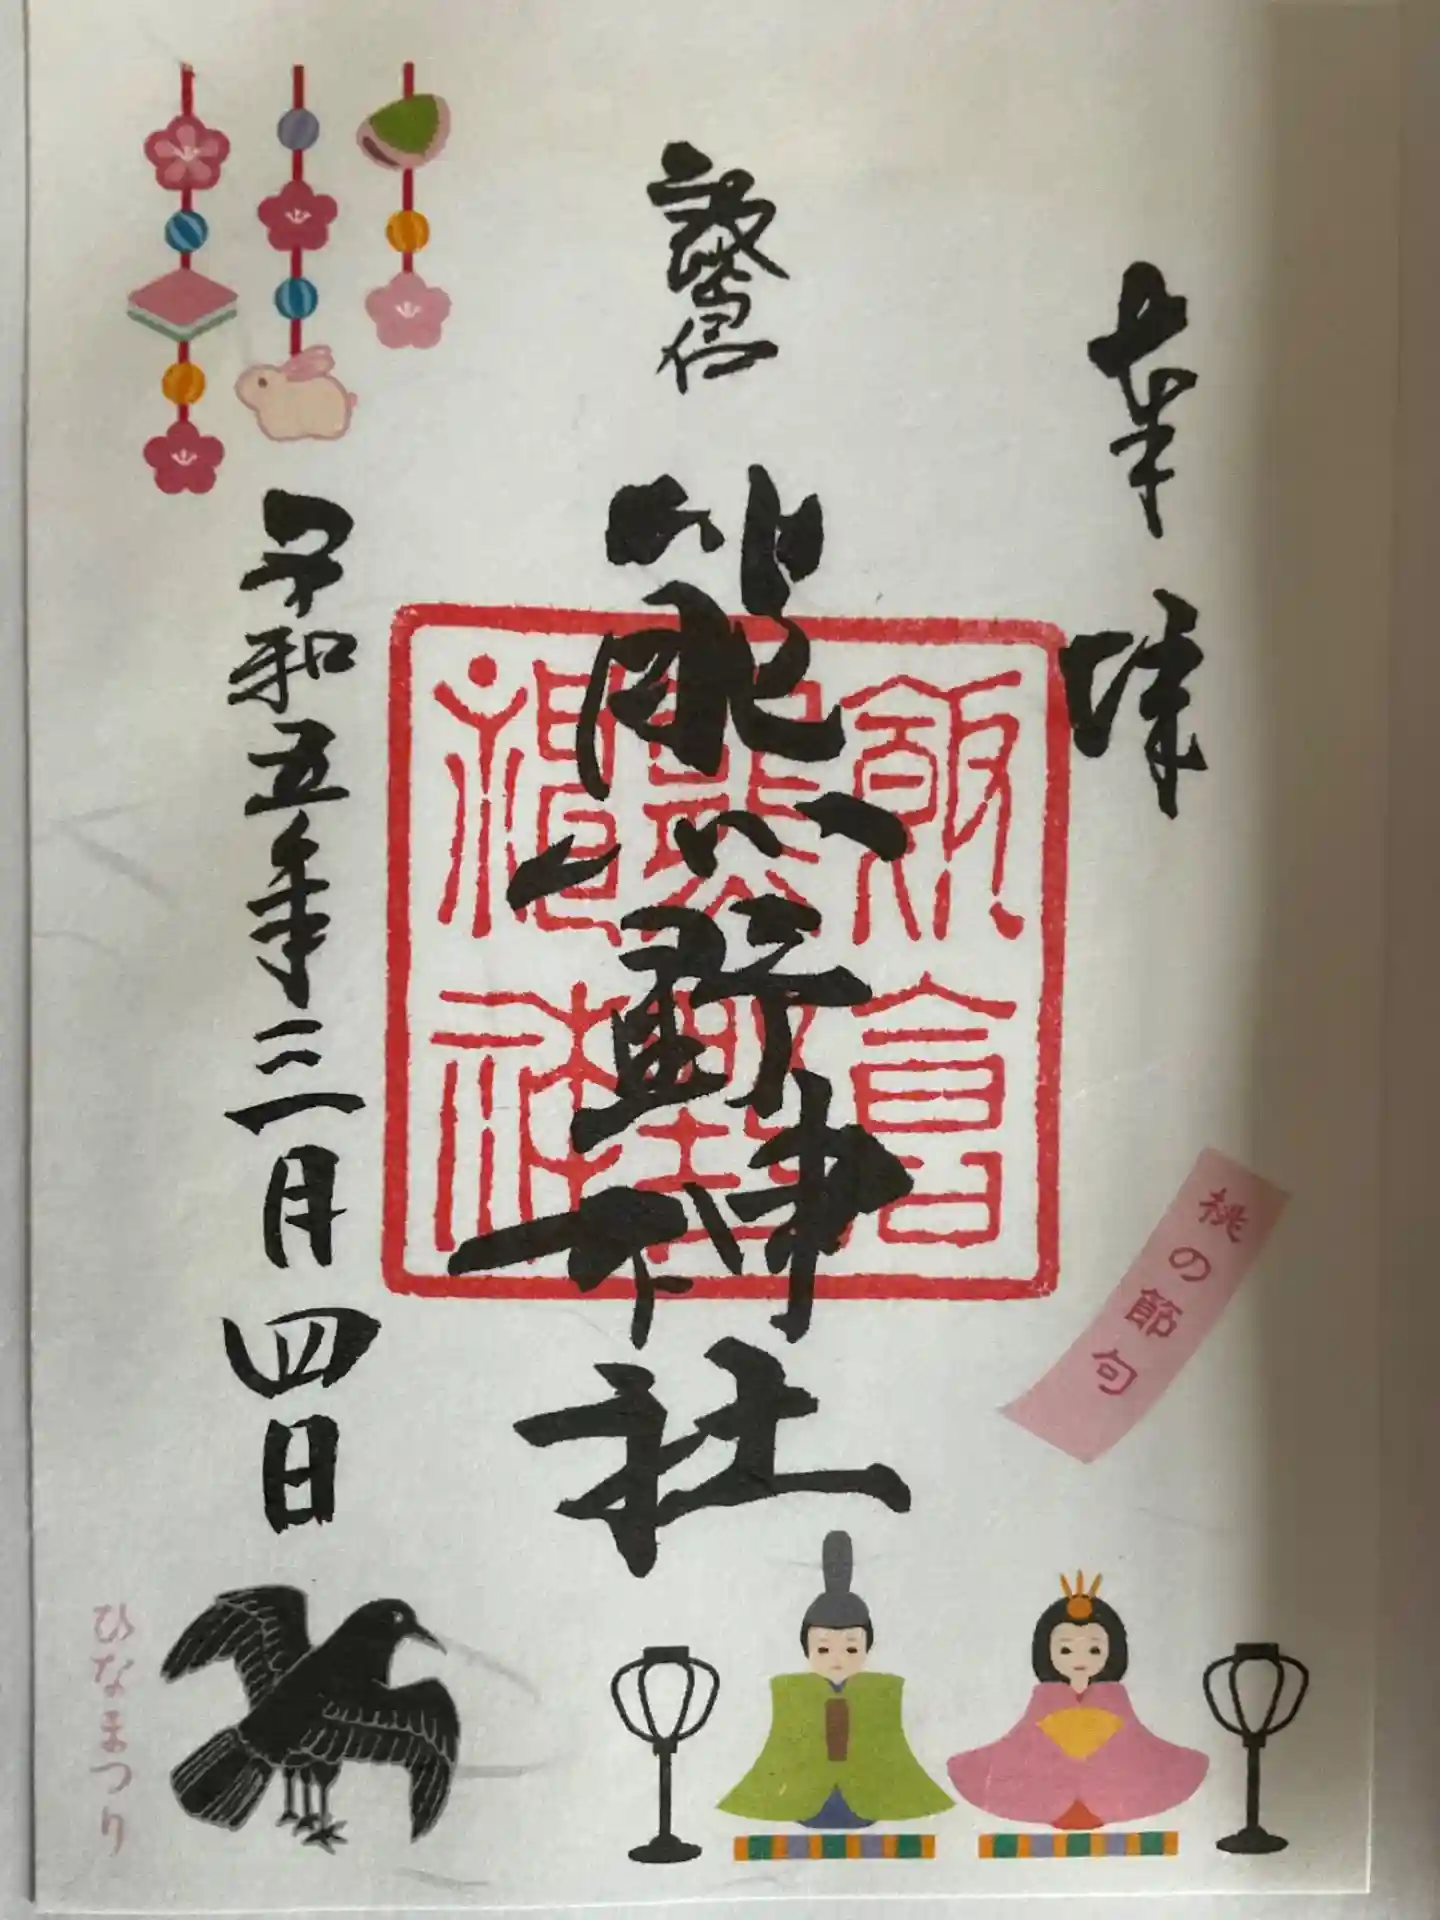 奉拝
桃の節句
熊野神社
飯倉
熊野
神社
令和五年三月四日
ひなまつり